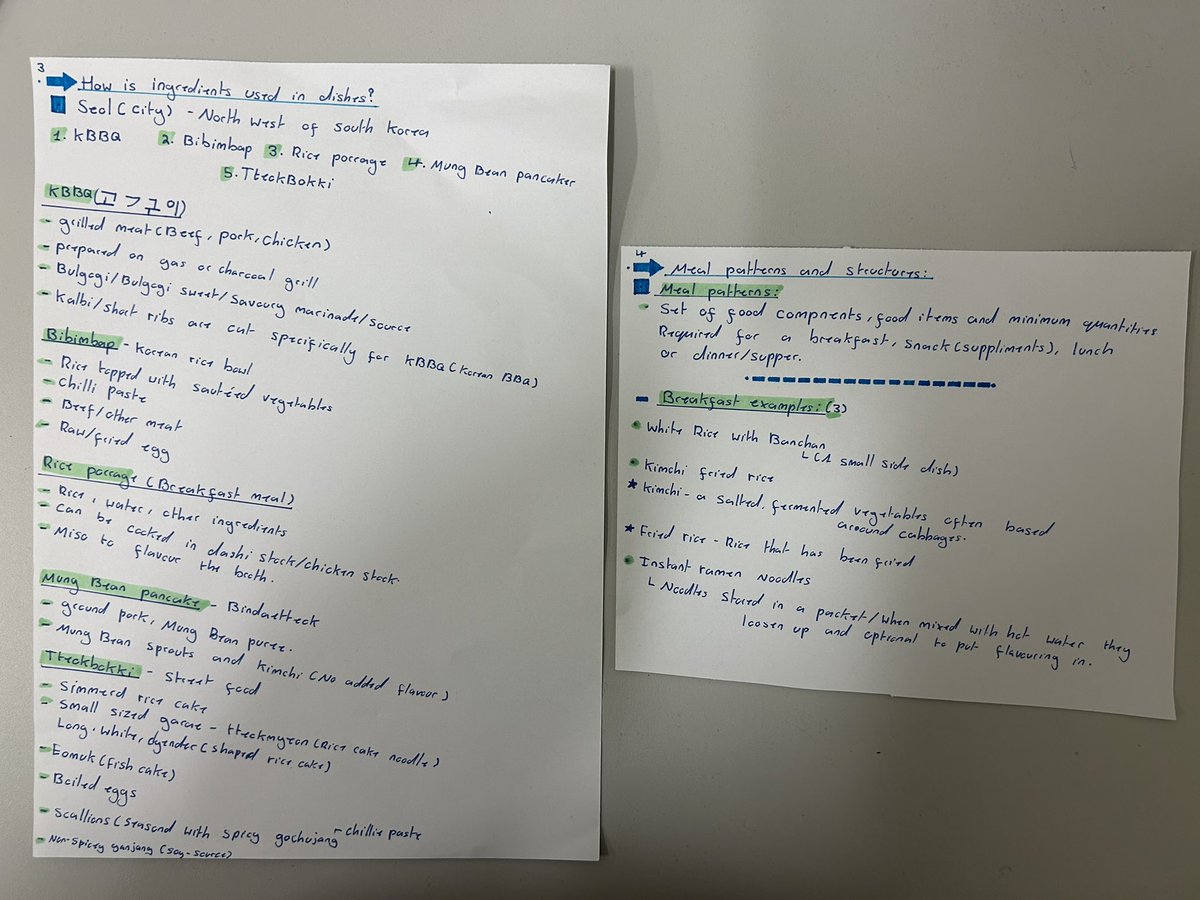 3
How is ingredients used in dishes?
Seol (city) - North west of south Korea
1. KBBQ 2. Bibimbap 3. Rice porrage 4. Mung Bean pancakes
5. TteckBokki
KBBQ (고기구이)
- grilled meat (Beef, pork, chicken)
- prepared on gas or charcoal grill
- Bulgogi/Bulgogi sweet/savoury marinade/source
- Kalbi/short ribs are cut specifically for KBBQ (Korean BBQ)
Bibimbap - Korean rice bowl
- Rice topped with sautéed vegetables
- Chilli paste
- Beef/other meat
- Raw/fried egg
Rice porrage (Breakfast meal)
- Rice, water, other ingredients
- can be cocked in dashi stock/chicken stock.
- Miso to flavour the broth.
Mung Bean pancake - Bindaetteck
- ground pork, Mung Bean puree.
- Mung Bean sprouts and kimchi (No added flavour)
Tteckbokki - street food
- Simmerd rice cake
- Small sized garae - tteckmyeon (Rice cake noodle)
Long, white, cylender (shaped rice cake)
- Eomuk (fish cake)
- Boiled eggs
- Scallions (seasond with spicy gochujang - chillie paste
- Non-spicey ganjang (soy-source)
4
Meal patterns and structures:
Meal patterns:
- Set of food compnents, food items and minimum quantities
Required for a breakfast, snack (suppliments), lunch
or dinner/supper.
- Breakfast examples: (3)
• White Rice with Banchan
└ (A small side dish)
• Kimchi fried rice
* Kimchi - a salted, fermented vegetables often based
around cabbages.
* Fried rice - Rice that has been fried
• Instant ramen noodles
└ Noodles stored in a packet/when mixed with hot water they
loosen up and optional to put flavouring in.